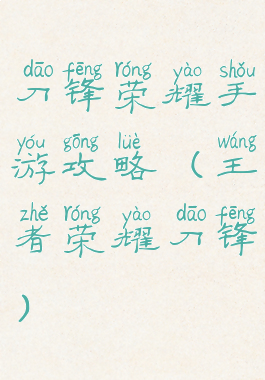 dāo fēng róng yào shǒu
刀锋荣耀手
yóu gōng lüè wáng
游攻略（王
zhě róng yào dāo fēng
者荣耀刀锋
）